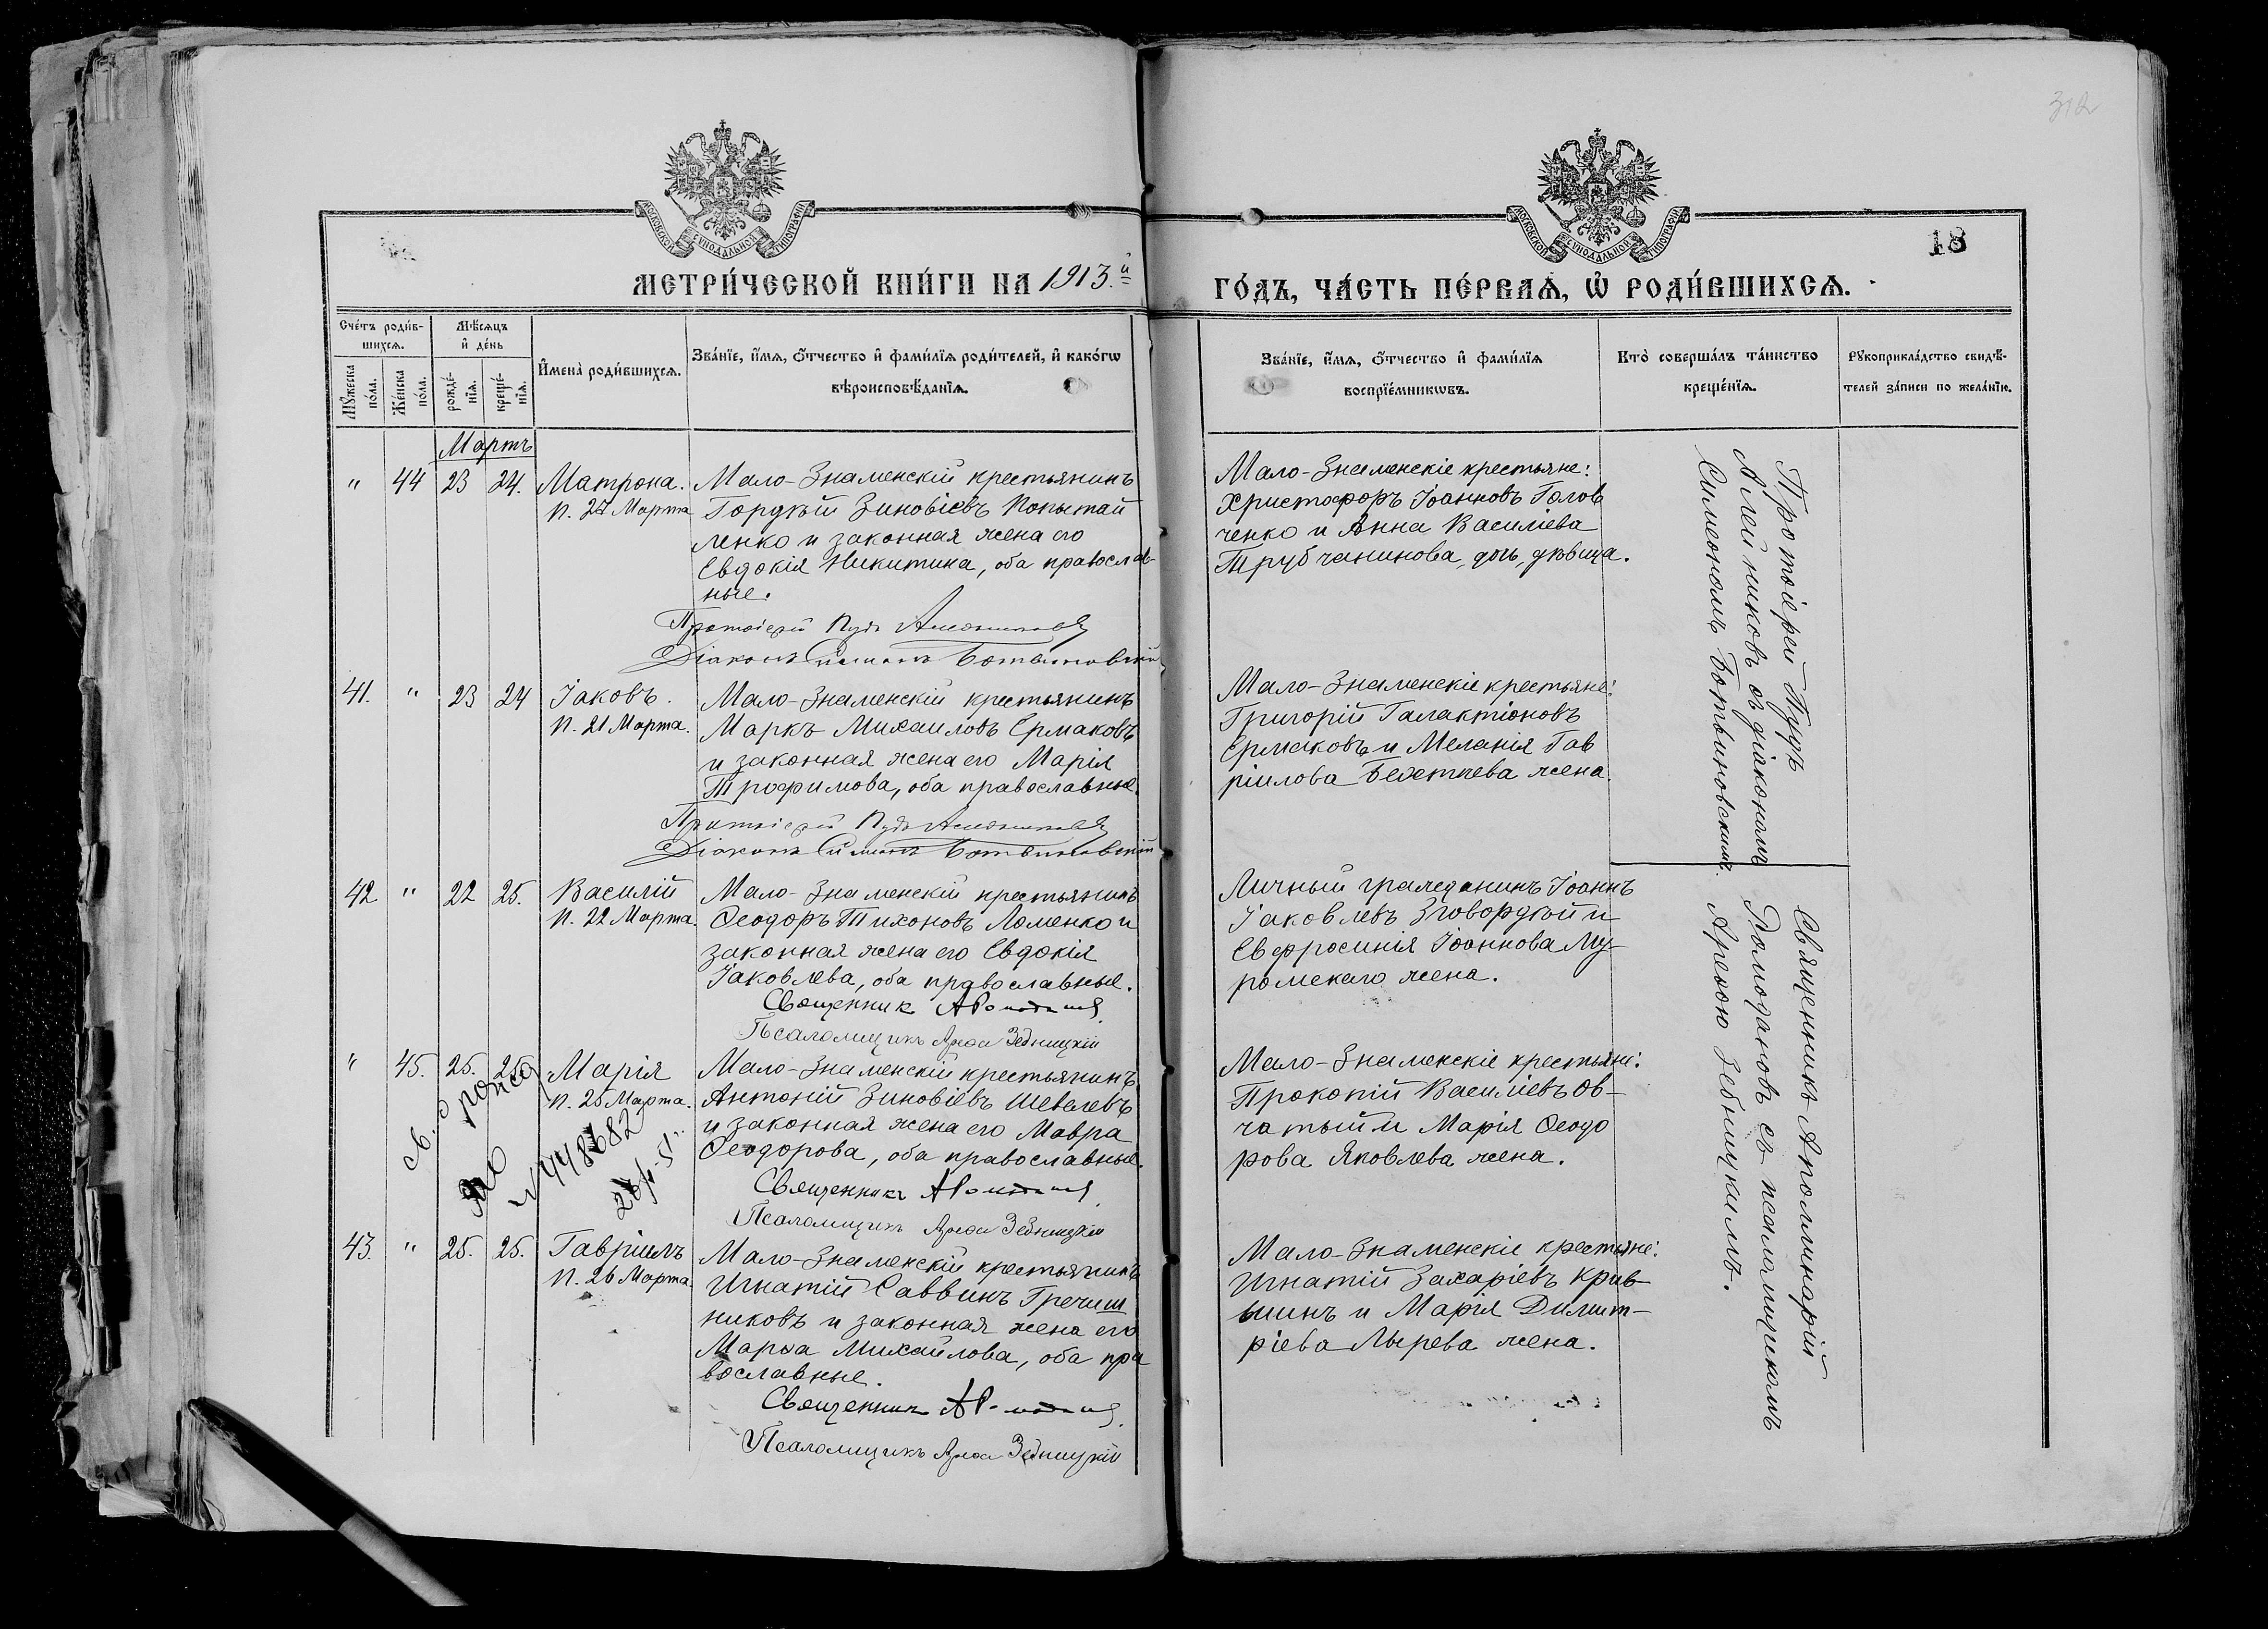 312
18
МОСКОВСКОЙ СѴНОДАЛЬНОЙ ТИПОГРАФІИ
МОСКОВСКОЙ СѴНОДАЛЬНОЙ ТИПОГРАФІИ
МЕТРИ́ЧЕСКОЙ КНИ́ГИ НА 1913.й
ГО́ДЪ, ЧА́СТЬ ПЕ́РВАѦ, Ѡ҆ РОДИ́ВШИХСѦ.
Сче́тъ роди́в-
шихсѧ.
Мѣ́сѧцъ
и҆ де́нь
Мꙋ́жеска
по́ла.
Же́нска
по́ла.
рожде́-
нїѧ.
креще́-
нїѧ.
И҆мена̀ роди́вшихсѧ.
Зва́нїе, и҆́мѧ, ѻ҆́тчество и҆ фами́лїѧ роди́телей, и҆ како́гѡ
вѣроисповѣ́данїѧ.
Зва́нїе, и҆́мѧ, ѻ҆́тчество и҆ фами́лїѧ
воспрїе́мникѡвъ.
Кто̀ соверша́лъ та́инство
креще́нїѧ.
Рꙋкоприкла́дство свидѣ́-
телей за́писи по жела́нїю.
Мартъ
" 44 23 24. Матрона.
п. 27 Марта
Мало-Знаменскій крестьянинъ
Гордѣй Зиновіевъ Копытай
ленко и законная жена его
Евдокія Никитина, оба православ-
ные.
Протоіерей Пудъ Алейниковъ
Діаконъ Симеонъ Ботвиновскій
Мало-Знаменскіе крестьяне:
Христофоръ Іоанновъ Голов
ченко и Анна Василіева
Трубчанинова, дочь, дѣвица.
Протоіерей Пудъ
Алейниковъ съ діакономъ
Симеономъ Ботвиновскимъ.
41. " 23 24 Іаковъ.
п. 21 Марта.
Мало-Знаменскій крестьянинъ
Маркъ Михаиловъ Ермаковъ
и законная жена его Марія
Трофимова, оба православные.
Протоіерей Пудъ Алейниковъ
Діаконъ Симеонъ Ботвиновскій
Мало-Знаменскіе крестьяне:
Григорій Галактіоновъ
Ермаковъ и Меланія Гав
ріилова жена.
42 " 22 25. Василій
п. 22 Марта.
Мало-Знаменскій крестьянинъ
Ѳеодоръ Тихоновъ Ломенко и
законная жена его Евдокія
Іаковлева, оба православные.
Священникъ
Псаломщикъ Арефа Зебницкій
Личный гражданинъ Іоаннъ
Іаковлевъ и
Евфросинія Іоаннова Му-
ромскаго жена.
Священникъ Аполлинарій
Помодановъ съ псаломщикомъ
Арефою Зебницкимъ.
" 45. 25. 25. Марія
п. 25 Марта.
Мало-Знаменскій крестьянинъ
Антоній Зиновіевъ Шевелевъ
и законная жена его Мавра
Ѳеодорова, оба православные.
Священникъ
Псаломщикъ Арефа Зебницкій
Мало-Знаменскіе крестьяне:
Прокопій Василіевъ Ов-
чатый и Марія Ѳеодо
рова Яковлева жена.
св. о рожд
43. " 25. 25. Гавріилъ
п. 26 Марта
Мало-Знаменскій крестьянинъ
Игнатій Саввинъ Гречиш
никовъ и законная жена его
Марѳа Михаилова, оба пра
вославные.
Священникъ
Псаломщикъ Арефа Зебницкій
Мало-Знаменскіе крестьяне:
Игнатій Захаріевъ Крив
шинъ и Марія Димит-
ріева Лырева жена.